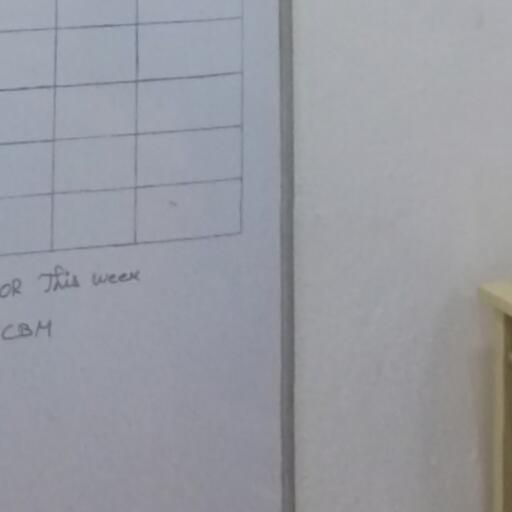 OR This week
CBM